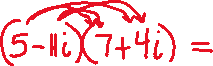 (5-11i)(7+4i) =